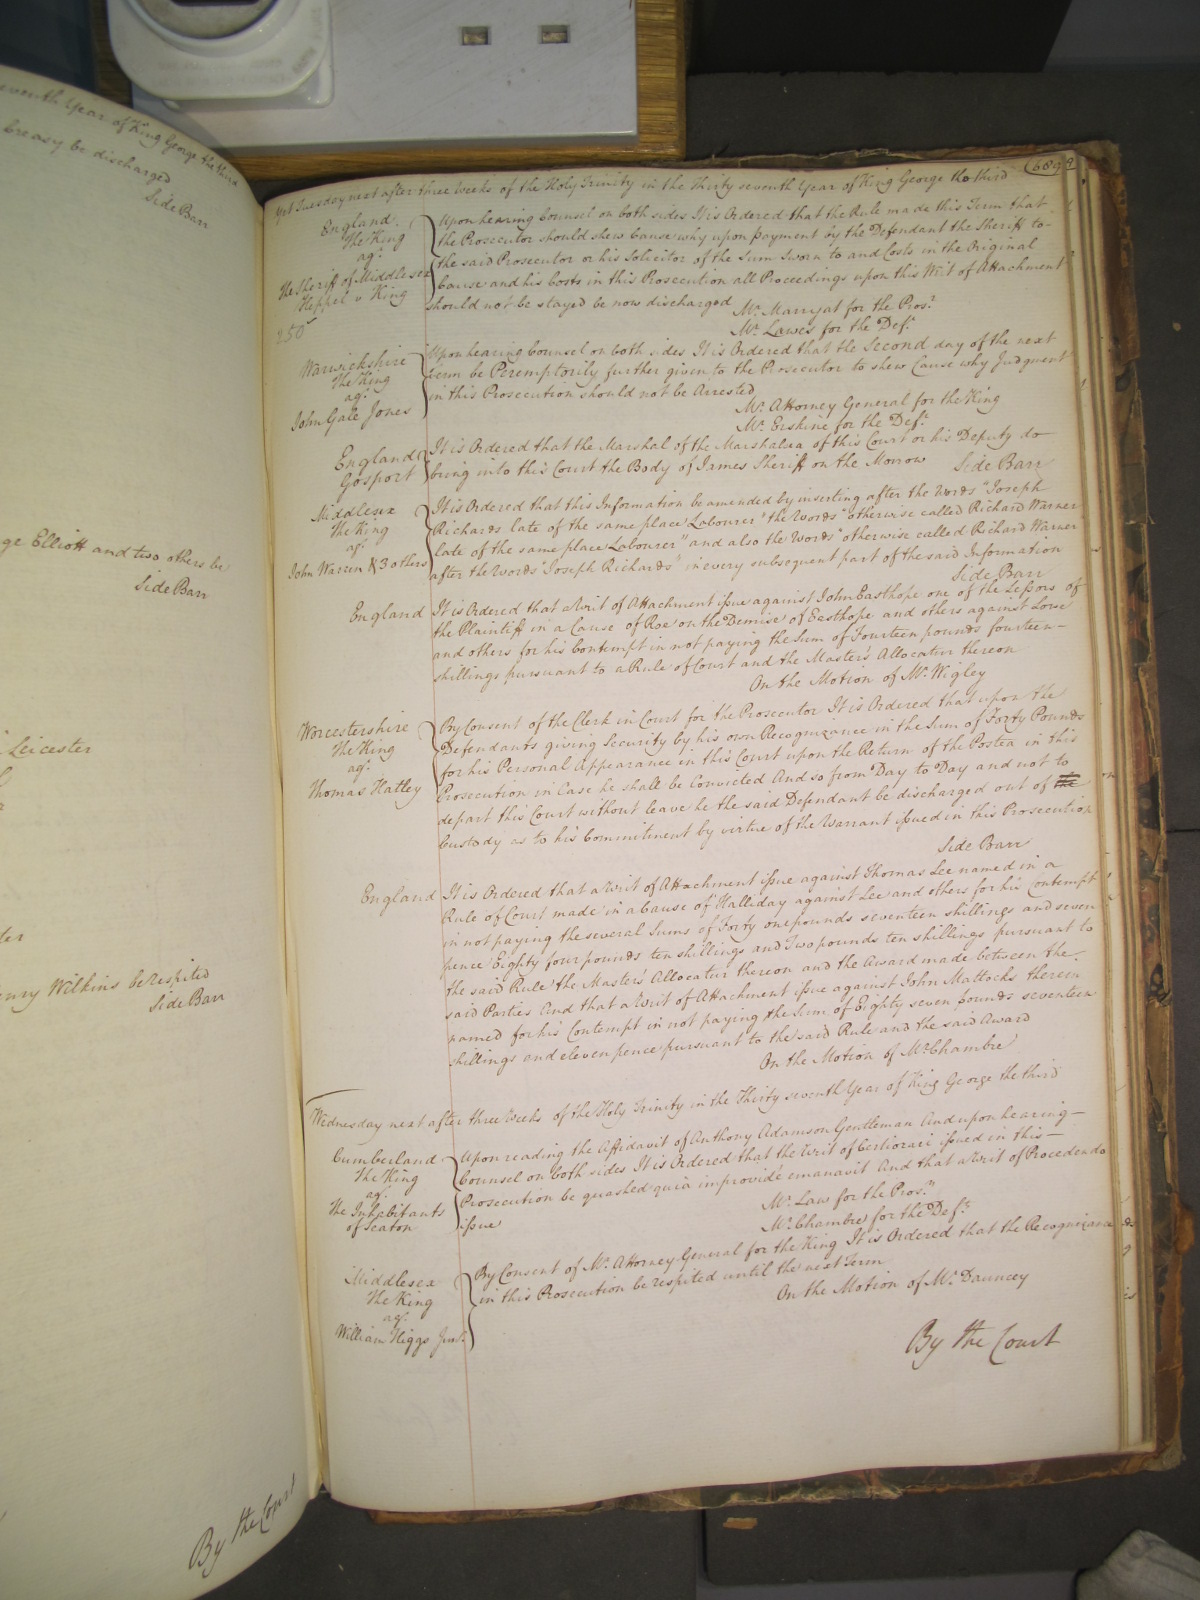 eventh Year of King George the third
breasy be discharged
Side Barr
ge Elliott and two others be
Side Barr
Leicester
ter
enry Wilkins be respited
Side Barr
By the Court
yet Tuesday next after three Weeks of the Holy Trinity in the Thirty seventh Year of King George the third
England
The King
agt
The Sheriff of Middlesex
Heppel v King
250
Upon hearing Counsel on both sides It is Ordered that the Rule made this Term that
the Prosecutor should shew Cause why upon payment by the Defendant the Sheriff to
the said Prosecutor or his Solicitor of the Sum Sworn to and Costs in the Original
Cause and his Costs in this Prosecution all Proceedings upon this Writ of Attachment
should not be stayed be now discharged
Mr. Marryat for the Prosr
Mr. Lawes for the Deft
Warwickshire
The King
agt
John Gale Jones
Upon hearing Counsel on both sides It is Ordered that the Second day of the next
Term be Peremptorily further given to the Prosecutor to shew Cause why Judgment
in this Prosecution should not be Arrested
Mr. Attorney General for the King
Mr. Erskine for the Deft
England
Gosport
It is Ordered that the Marshal of the Marshalsea of this Court or his Deputy do
bring into this Court the Body of James Sheriff on the Morrow
Side Barr
Middlesex
The King
agt
John Warren & 3 others
It is Ordered that this Information be amended by inserting after the Words "Joseph
Richards late of the same place Labourer" the Words "otherwise called Richard Warner
late of the same place Labourer" and also the Words "otherwise called Richard Warner
after the Words "Joseph Richards" in every subsequent part of the said Information
Side Barr
England
It is Ordered that a Writ of Attachment issue against John Easthope one of the Lessors of
the Plaintiff in a Cause of Roe on the Demise of Easthope and others against Lowe
and others for his Contempt in not paying the Sum of Fourteen pounds fourteen
shillings pursuant to a Rule of Court and the Master's Allocatur thereon
On the Motion of Mr. Wigley
Worcestershire
The King
agt
Thomas Hatley
By Consent of the Clerk in Court for the Prosecutor It is Ordered that upon the
Defendants giving Security by his own Recognizance in the Sum of Forty Pounds
for his Personal Appearance in this Court upon the Return of the Postea in this
Prosecution in Case he shall be Convicted And so from Day to Day and not to
depart this Court without leave he the said Defendant be discharged out of the
Custody as to his Commitment by virtue of the Warrant issued in this Prosecution
Side Barr
England
It is Ordered that a Writ of Attachment issue against Thomas Lee named in a
Rule of Court made in a Cause of Halliday against Lee and others for his Contempt
in not paying the several Sums of Forty one pounds seventeen shillings and seven
pence Eighty four pounds ten shillings and Two pounds ten shillings pursuant to
the said Rule the Master's Allocatur thereon and the Award made between the
said Parties And that a Writ of Attachment issue against John Mattocks therein
named for his Contempt in not paying the Sum of Eighty seven pounds seventeen
shillings and eleven pence pursuant to the said Rule and the said Award
On the Motion of Mr. Chambre
Wednesday next after three Weeks of the Holy Trinity in the Thirty seventh Year of King George the third
Cumberland
The King
agt
The Inhabitants
of Seaton
Upon reading the Affidavit of Anthony Adamson Gentleman And upon hearing
Counsel on both sides It is Ordered that the Writ of Certiorari issued in this
Prosecution be quashed quia improvidè emanavit And that a Writ of Procedendo
issue
Mr. Law for the Prosr
Mr. Chambre for the Defts
Middlesex
The King
agt
William Higgs Junr
By Consent of Mr. Attorney General for the King It is Ordered that the Recognizance
in this Prosecution be respited until the next Term
On the Motion of Mr. Dauncey
By the Court